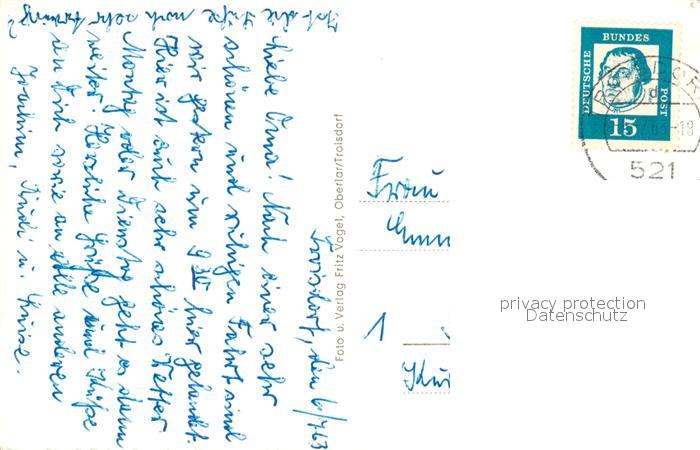 Troisdorf, den 6/7.63
Liebe Oma! Nach einer sehr
schönen und ruhigen Fahrt sind
wir gestern um 9 hier gelandet.
Hier ist auch sehr schönes Wetter.
Montag oder Dienstag geht es dann
weiter. Herzliche Grüße und Küße
an Dich sowie an alle anderen
Joachim, Rudi u. Luise.
Ist die Füße noch sehr
Foto u. Verlag Fritz Vogel, Oberlar/Troisdorf
DEUTSCHE BUNDES POST
15
521
Frau
1
privacy protection
Datenschutz